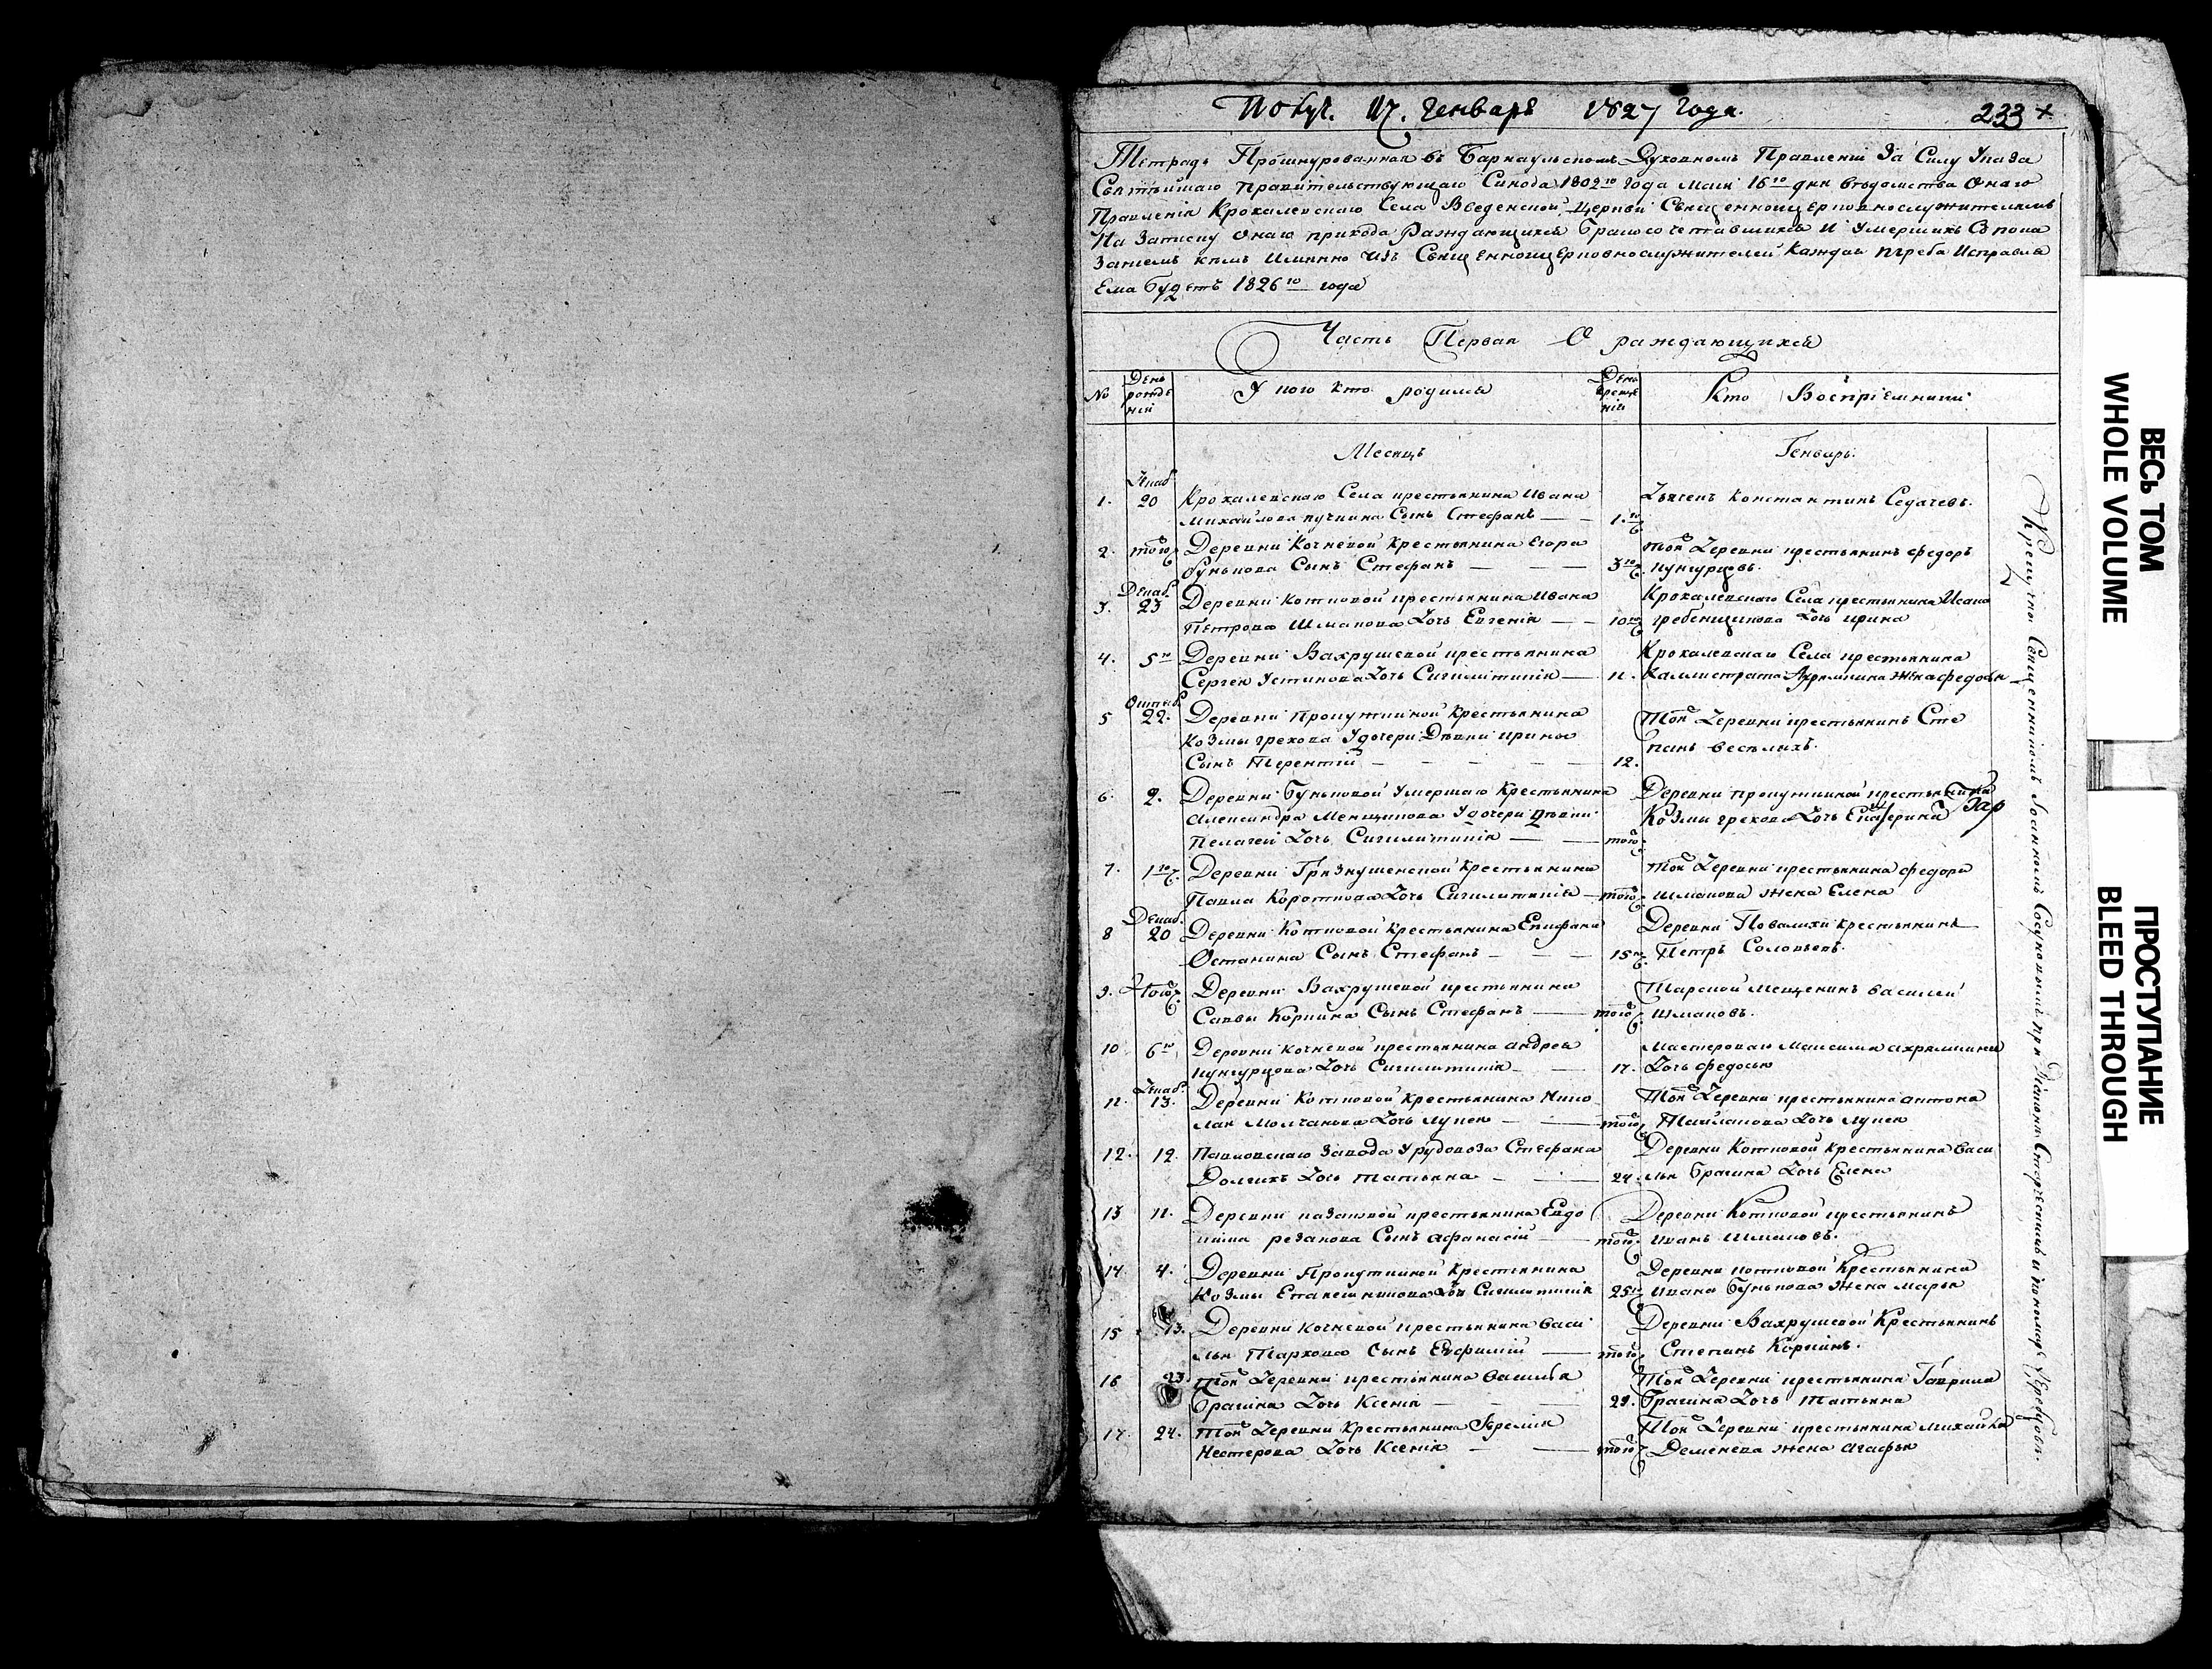 Генваря 1827 года.
233
Тетрадь Прошнурованная въ Барнаульскомъ Духовномъ Правленіи За Силу Указа
Святѣйшаго правительствующаго Синода 1802го года Маія 16го дня вѣдомства Онаго
Правленія Крохалевскаго Села Введенской Церкви Священноцерковнослужителямъ
На Записку Онаго прихода Раждающихся Бракосочетавшихся И Умершихъ Съ пока
Заніемъ кѣмъ Имянно Изъ Священноцерковнослужителей Каждая треба Исправля
Ема будетъ 1826го года
Часть Первая О раждающихся
№
День рожде ній
У кого кто родился
День креще нія
Кто Воспріемники
Месяцъ
Генварь.
1.
Декаб
20
Крохалевскаго Села крестьянина Ивана
Михайлова Сынъ Стефанъ
1.го
Дьячекъ Константинъ Седачевъ.
2.
того
Деревни Кочневой Крестьянина Егора
Бунькова Сынъ Стефанъ
3го
той Деревни крестьянинъ федоръ
кунгурцовъ.
3.
Декаб.
23
Деревни Котковой крестьянина Ивана
Петрова Шмакова Дочь Евгенія
10го
Крохалевскаго Села крестьянина Ивана
гребенщикова Дочь ирина
4.
5го
Деревни Вахрушевой крестьянина
Сергея Устинова Дочь Сигклитикія
11.
Крохалевскаго Села крестьянина
Каллистрата жена федосья
5
Октяб.
22.
Деревни Крестьянина
Козмы грехова У дочери Дѣвки ирины
Сынъ Терентій
12.
Той Деревни крестьянинъ Сте
панъ веселихъ.
6.
2.
Деревни Буньковой Умершаго Крестьянина
александра Менщикова У дочери Дѣвки
Пелагеи Дочь Сигклитикія
того
Деревни крестьянина
Козмы грехова Дочь Екатерина
7.
1го
Деревни Грязнушенской Крестьянина
Павла Короткова Дочь Сигклитикія
того
Той Деревни крестьянина федора
Шмакова жена Елена
8
Декаб.
20
Деревни Котковой Крестьянина Епифана
Останина Сынъ Стефанъ
15го
Деревни Повалихи Крестьянинъ
Петръ Соловьевъ.
9.
того
Деревни Вахрушевой крестьянина
Саввы Коркина Сынъ Стефанъ
того
Тарской Мещенинъ василей
Шмаковъ.
10
6го
Деревни Кочневой крестьянина андрея
кунгурцова Дочь Сигклитикія
17.
Мастероваго Максима
Дочь федосья
11.
Декаб.
13.
Деревни Котковой Крестьянина Нико
лая Молчанова Дочь лукея
того
Той Деревни крестьянина антона
Дочь лукея
12.
12.
Павловскаго Завода Урудовоза Стефана
Долгихъ Дочь татьяна
24.
Деревни Котковой Крестьянина васи
лья Брагина Дочь Елена
13
11.
Деревни казанковой крестьянина Евдо
кима резанова Сынъ афанасій
того
Деревни Котковой крестьянинъ
иванъ Шмаковъ.
14
4.
Деревни Крестьянина
Козмы Дочь Сигклитикія
25го
Деревни котковой Крестьянина
ивана Бунькова жена марья
15
13.
Деревни Кочневой крестьянина васи
лья Тархова Сынъ Евфимій
того
Деревни Вахрушевой Крестьянинъ
Степанъ Коркинъ.
16
23.
той Деревни крестьянина василья
Брагина Дочь Ксенія
29.
Той Деревни крестьянина Гаврила
Брагина Дочь татьяна
17
24.
той Деревни Крестьянина Еремія
Нестерова Дочь Ксенія
того
Той Деревни крестьянина михаила
Деменева жена агафья
ВЕСЬ ТОМ
WHOLE VOLUME
ПРОСТУПАНИЕ
BLEED THROUGH